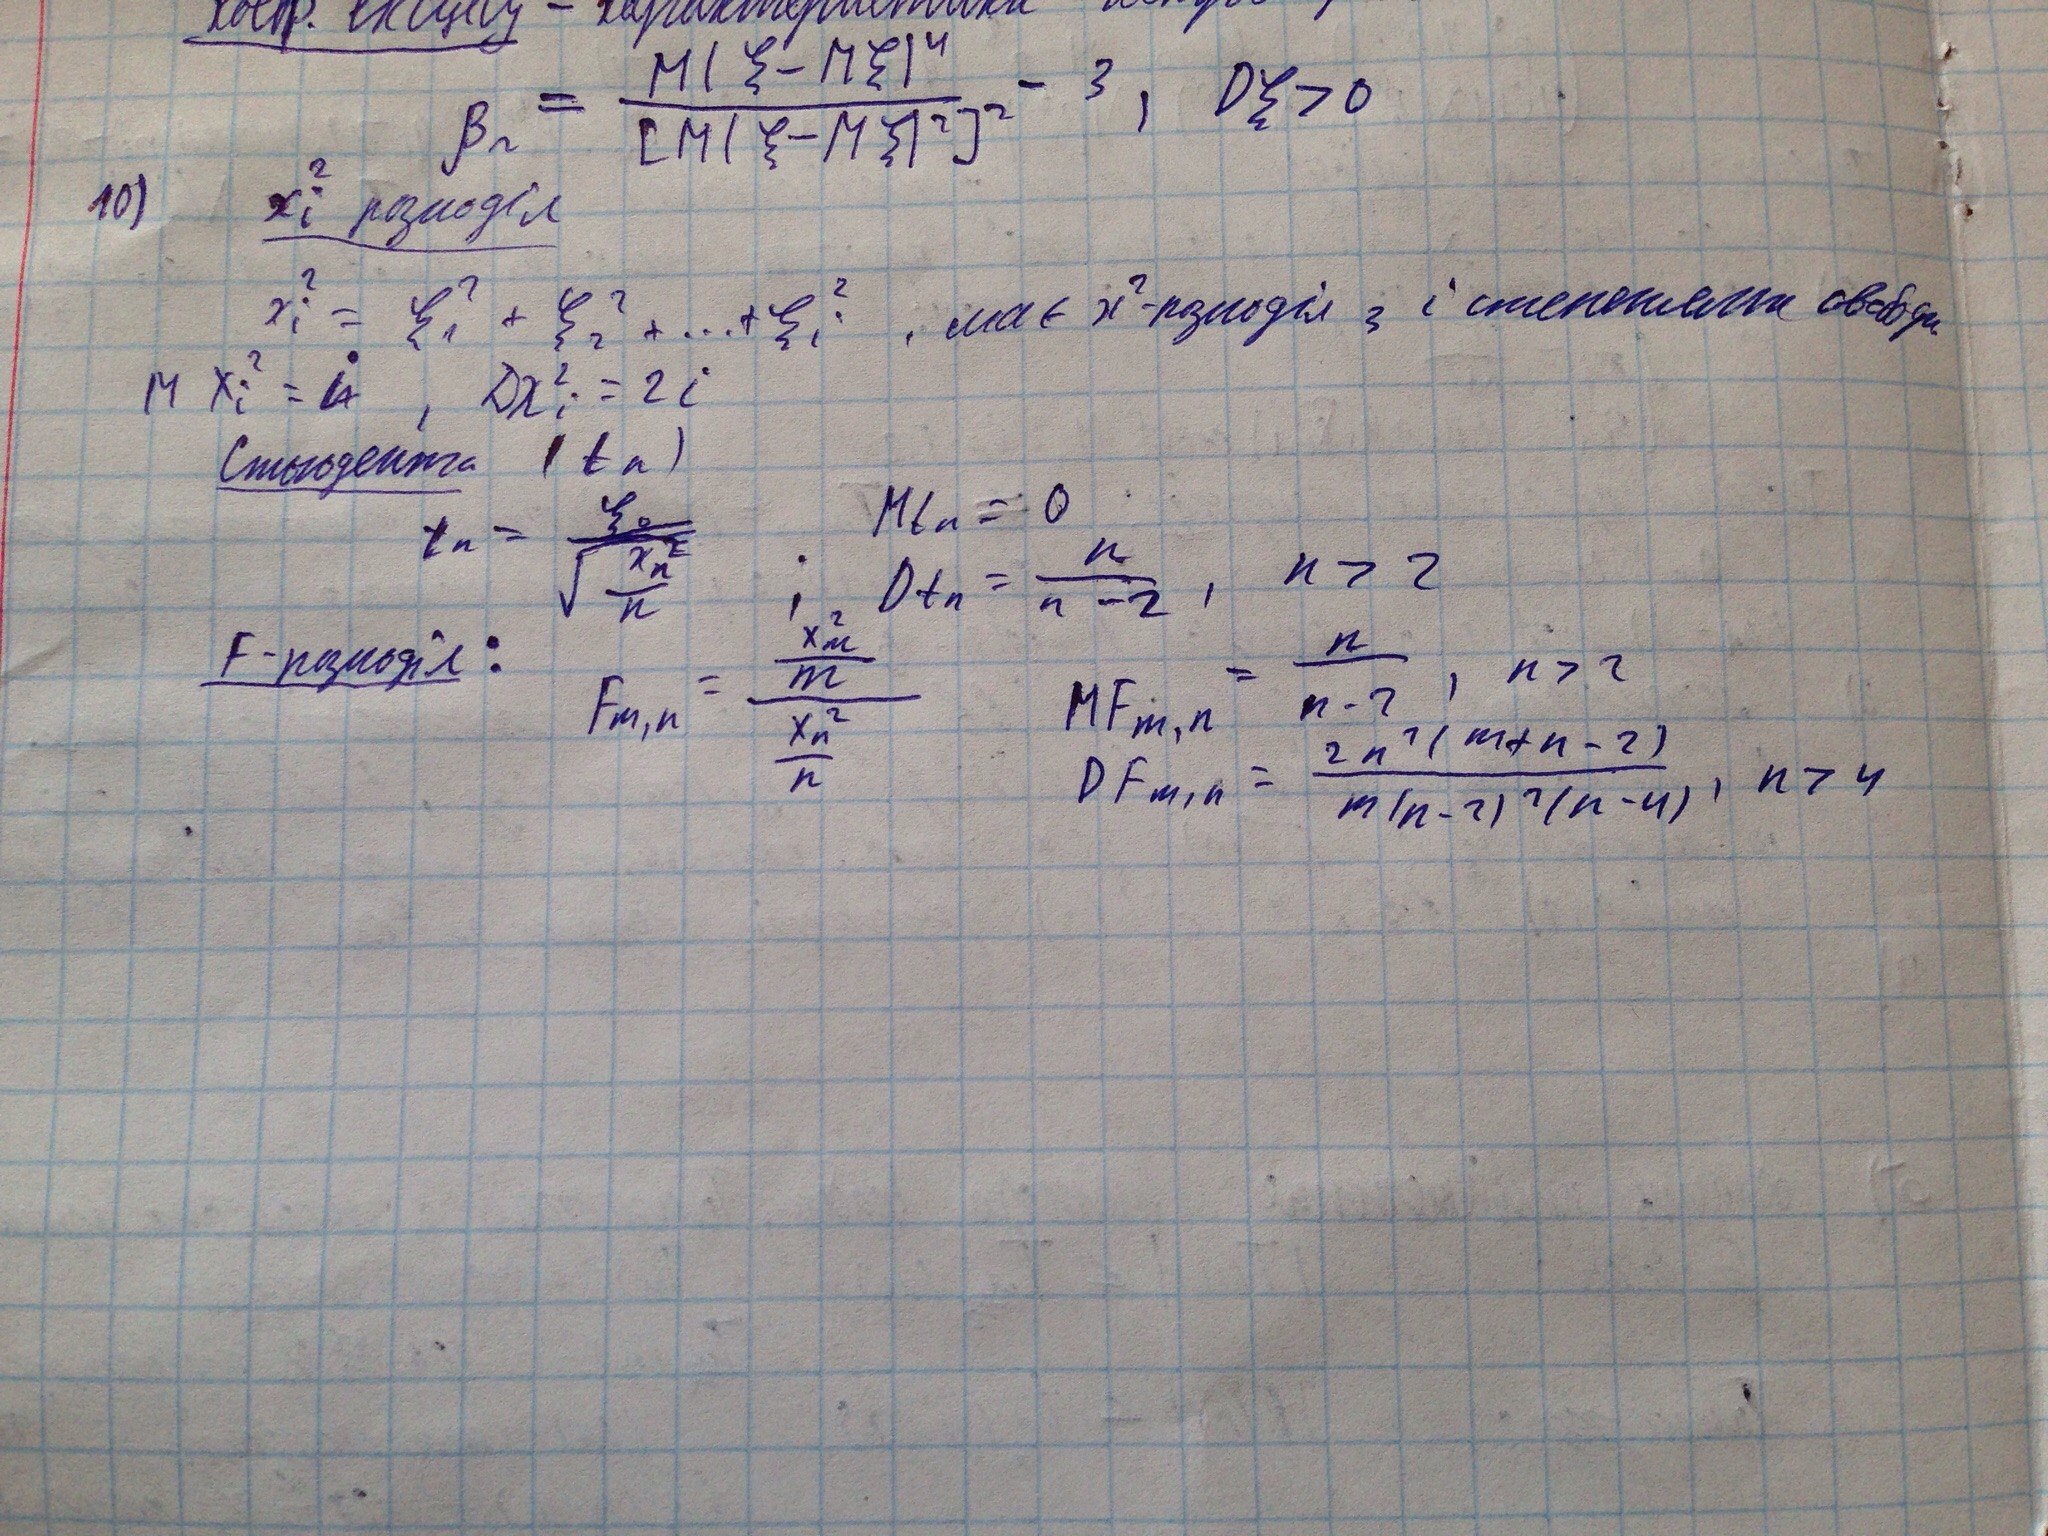 коеф. ексцесу – характеристика
β₂ = M(ξ-Mξ)⁴ / [M(ξ-Mξ)²]² - 3, Dξ>0
10) χᵢ² розподіл
χᵢ² = ξ₁² + ξ₂² + ... + ξᵢ², має χ²-розподіл з і степенями свободи
M χᵢ² = i, Dχᵢ² = 2i
Стьюдента (tₙ)
tₙ = ξ₀ / √(χₙ²/n) ; Mtₙ = 0
Dtₙ = n / (n-2), n > 2
F-розподіл: Fm,n = (χm²/m) / (χn²/n) MFm,n = n / (n-2), n>2
DFm,n = 2n²(m+n-2) / m(n-2)²(n-4), n>4